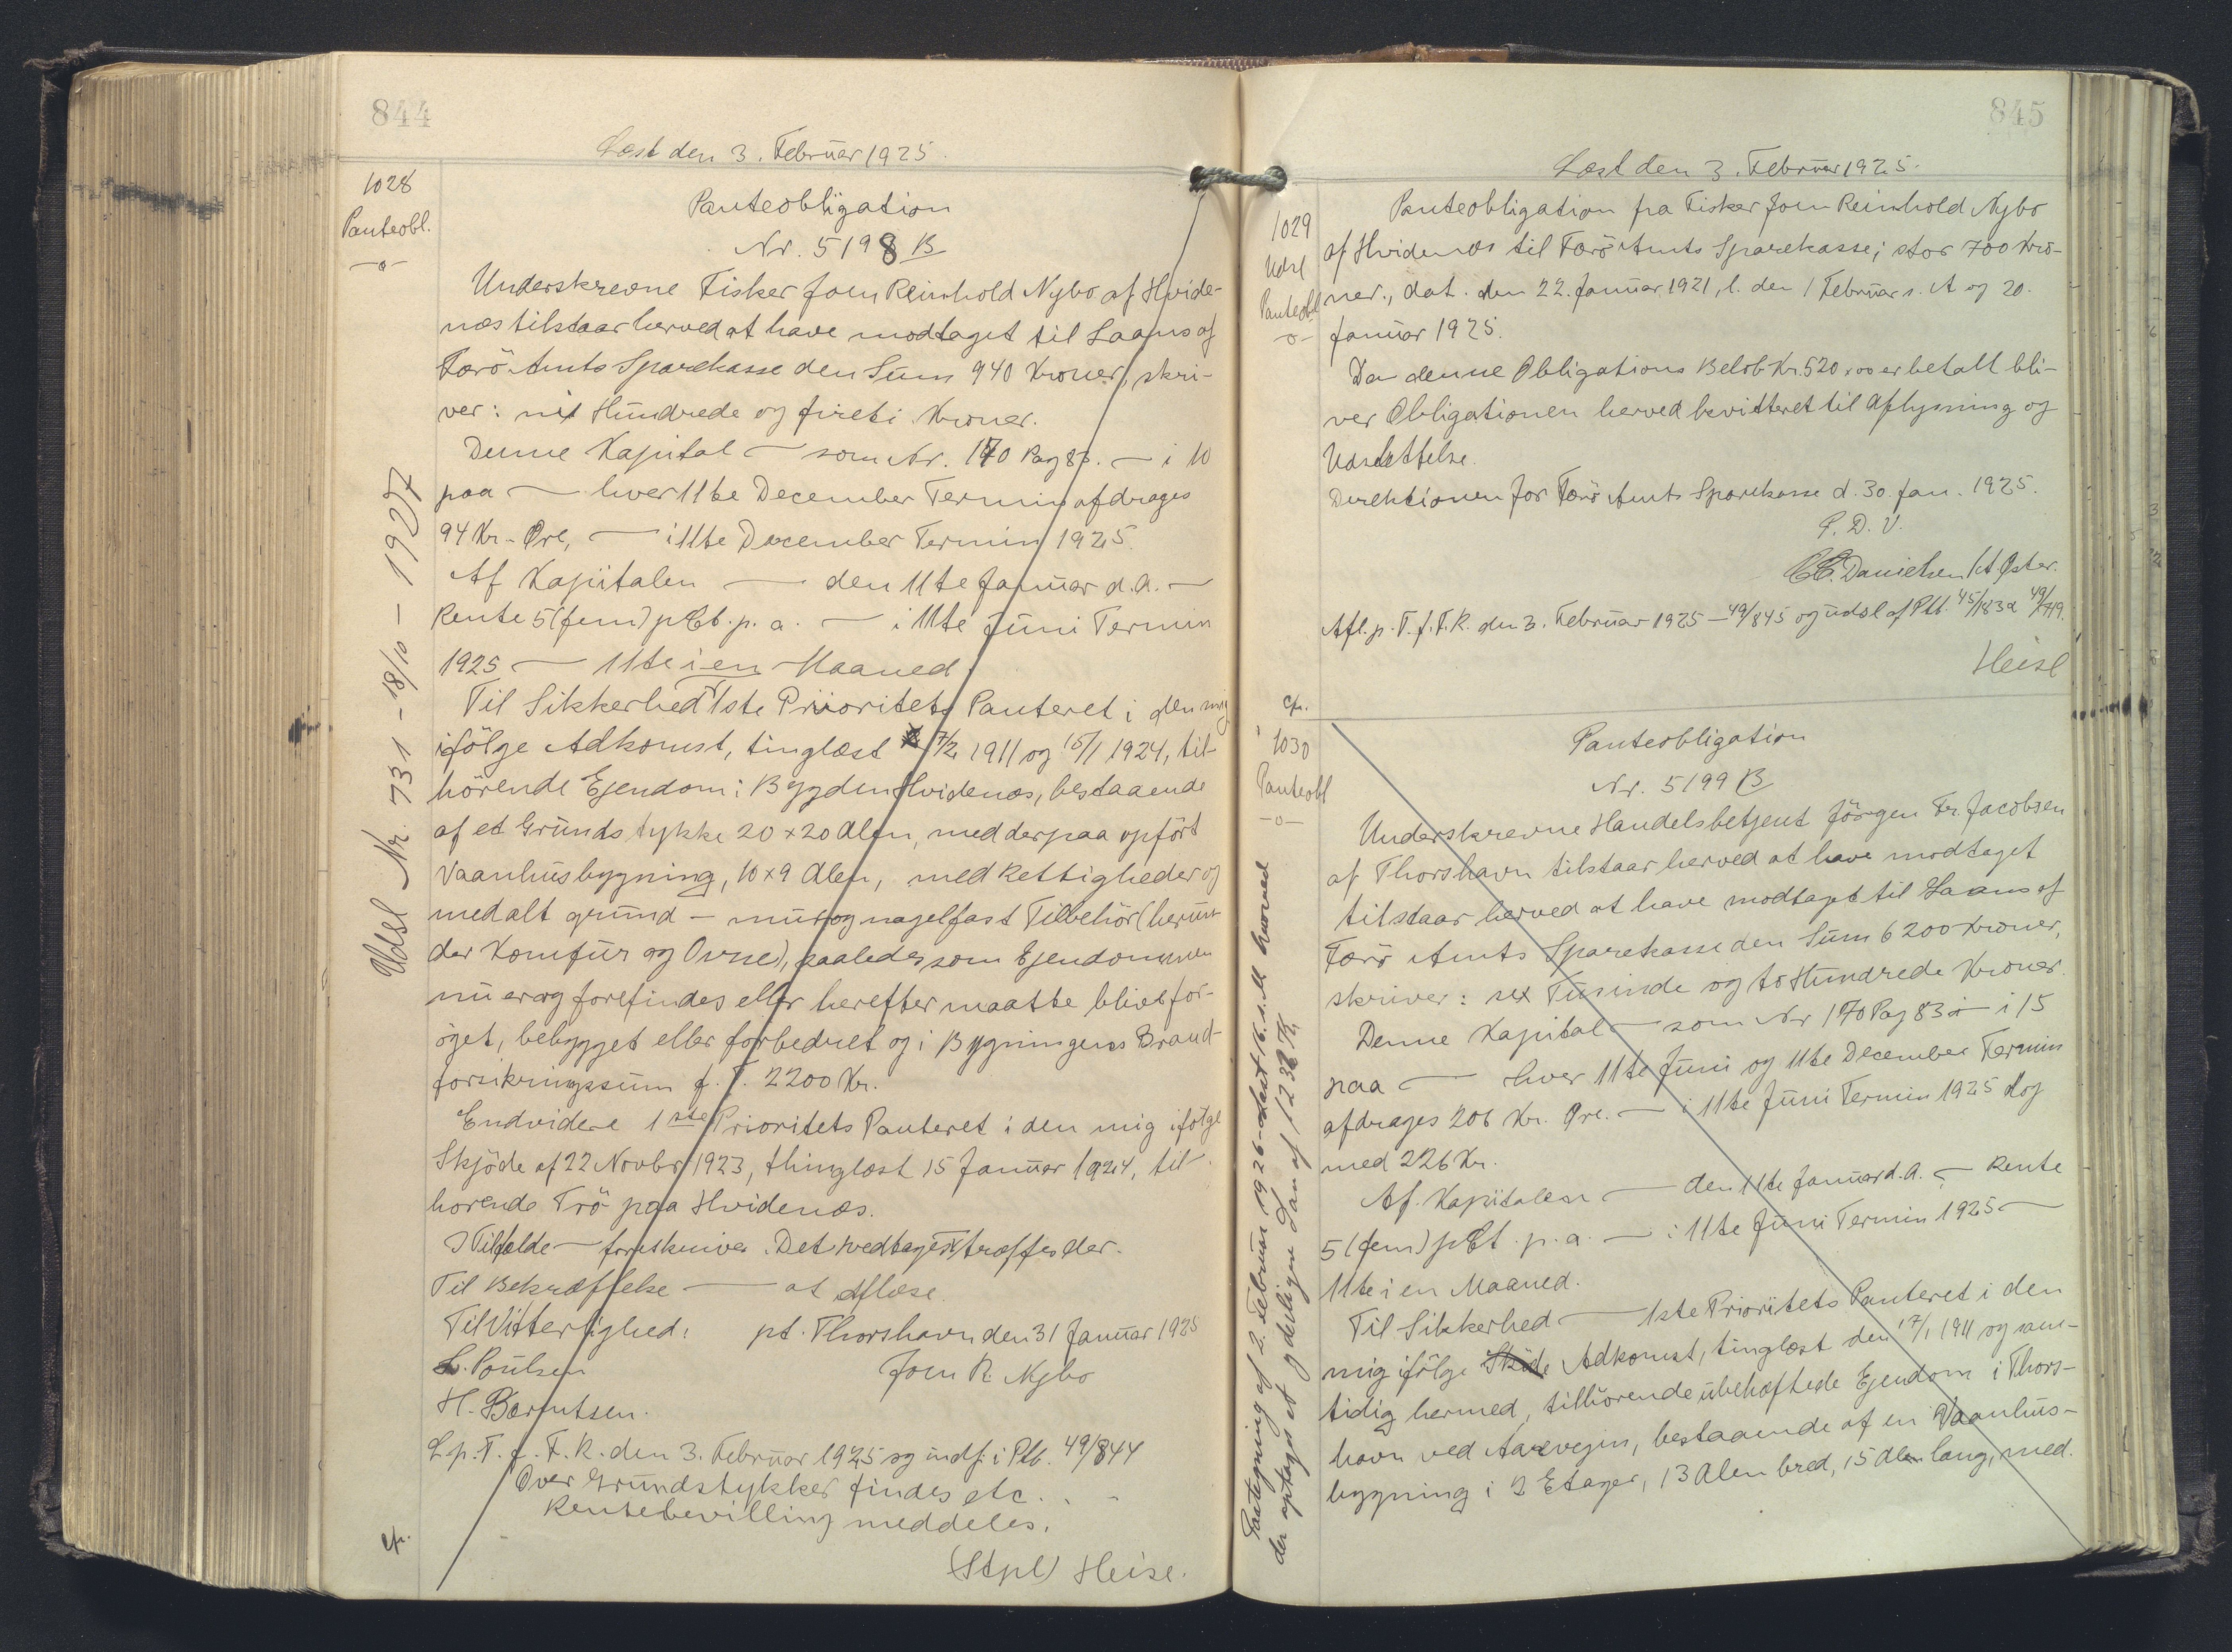 844
Læst den 3. Februar 1925.
1028
Panteobl.
-o-
Panteobligation
Nr. 5198 B
Underskrevne Fisker Joen Reinhold Nybo af Hvide-
næs tilstaar herved at have modtaget til Laans af
Færö Amts Sparekasse den Sum 940 Kroner, skri-
ver: ni Hundrede og fireti Kroner.
Denne Kapital — som Nr. 170 Pag 83. — i 10
paa — hver 11te December Termin afdrages
94 Kr - Øre, — i 11te December Termin 1925.
Af Kapitalen — den 11te Januar d.A. —
Rente 5 (fem) pCt. p. a. — i 11te Juni Termin
1925 — 11te i en Maaned.
Til Sikkerhed 1ste Prioritets Panteret i den mig
ifölge Adkomst, tinglæst 7/2 1911 og 15/1 1924, til-
hörende Ejendom i Bygden Hvidenæs, bestaaende
af et Grundstykke 20 x 20 Alen, med derpaa opfört
Vaanhusbygning, 10 x 9 Alen, med Rettigheder og
med alt grund - mur og nagelfast Tilbehör (herun-
der Komfur og Ovne), saaledes som Ejendommen
nu er og forefindes eller herefter maatte blive for-
öget, bebygget eller forbedret og i Bygningens Brand-
forsikringssum f. T. 2200 Kr.
Endvidere 1ste Prioritets Panteret i den mig ifölge
Skjöde af 22 Novbr 1923, thinglæst 15 Januar 1924, til-
hörende Trö paa Hvidenæs.
I Tilfælde — foreskrives. Det vedtages træffes der.
Til Bekræftelse — at aflæse.
Til Vitterlighed: pt. Thorshavn den 31 Januar 1925
L. Poulsen Joen R. Nybo
H. Berentsen.
L. p. T. f. F. R. den 3. Februar 1925 og indf. i Ptb. 49/844
Over Grundstykker findes etc. . .
Rentebevilling meddeles.
(Stpl) Heise.
cfr.
Udsl Nr. 731 - 18/10 - 1927
845
Læst den 3. Februar 1925.
1029
Udsl
Panteobl
-o-
Panteobligation fra Fisker Joen Reinhold Nybo
af Hvidenæs til Færö Amts Sparekasse; stor 700 Kro-
ner., dat. den 22. Januar 1921, l. den 1 Februar s. A og 20.
Januar 1925.
Da denne Obligations Belöb Kr. 520,00 er betalt bli-
ver Obligationen herved kvitteret til Aflysning og
Udslettelse.
Direktionen for Færö Amts Sparekasse d. 30. Jan. 1925.
P. D. V.
CC. Danielsen / A Øster.
Afl. p. T. f. F. R. den 3. Februar 1925 - 49/845 og udsl af Ptb. 45/183 & 49/779.
Heise
cfr.
1030
Panteobl
-o-
Panteobligation
Nr. 5199 B
Underskrevne Handelsbetjent Jörgen Fr. Jacobsen
af Thorshavn tilstaar herved at have modtaget
tilstaar herved at have modtaget til Laans af
Færö Amts Sparekasse den Sum 6200 Kroner,
skriver: sex Tusinde og to Hundrede Kroner.
Denne Kapital — som Nr 170 Pag 83 — i 15
paa — hver 11te Juni og 11te December Termin
afdrages 206 Kr. Øre. — i 11te Juni Termin 1925 dog
med 226 Kr.
Af Kapitalen — den 11te Januar d. A. — Rente
5 (fem) pCt. p. a. — i 11te Juni Termin 1925 —
11te i en Maaned.
Til Sikkerhed — 1ste Prioritets Panteret i den
mig ifölge Adkomst, tinglæst den 17/1 1911 og sam-
tidig hermed, tilhörende ubehæftede Ejendom i Thors-
havn ved Aarvejen, bestaaende af en Vaanhus-
bygning i 2 Etager, 13 Alen bred, 15 Alen lang, med.
Paategning af 2. Februar 1926 - læst 16. s. M hvorved
der optages et yderligere Laan af 1238 Kr